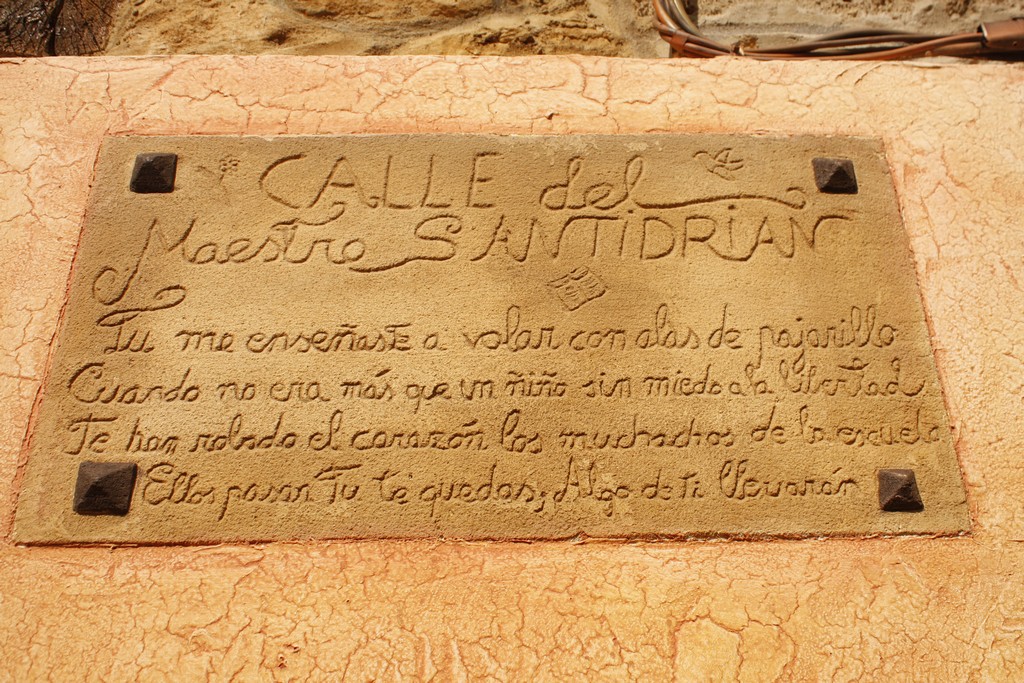 CALLE del
Maestro SANTIDRIAN
Tu me enseñaste a volar con alas de pajarillo
Cuando no era más que un niño sin miedo a la libertad
Te han robado el corazón los muchachos de la escuela
Ellos pasan Tu te quedas, Algo de ti llevarán